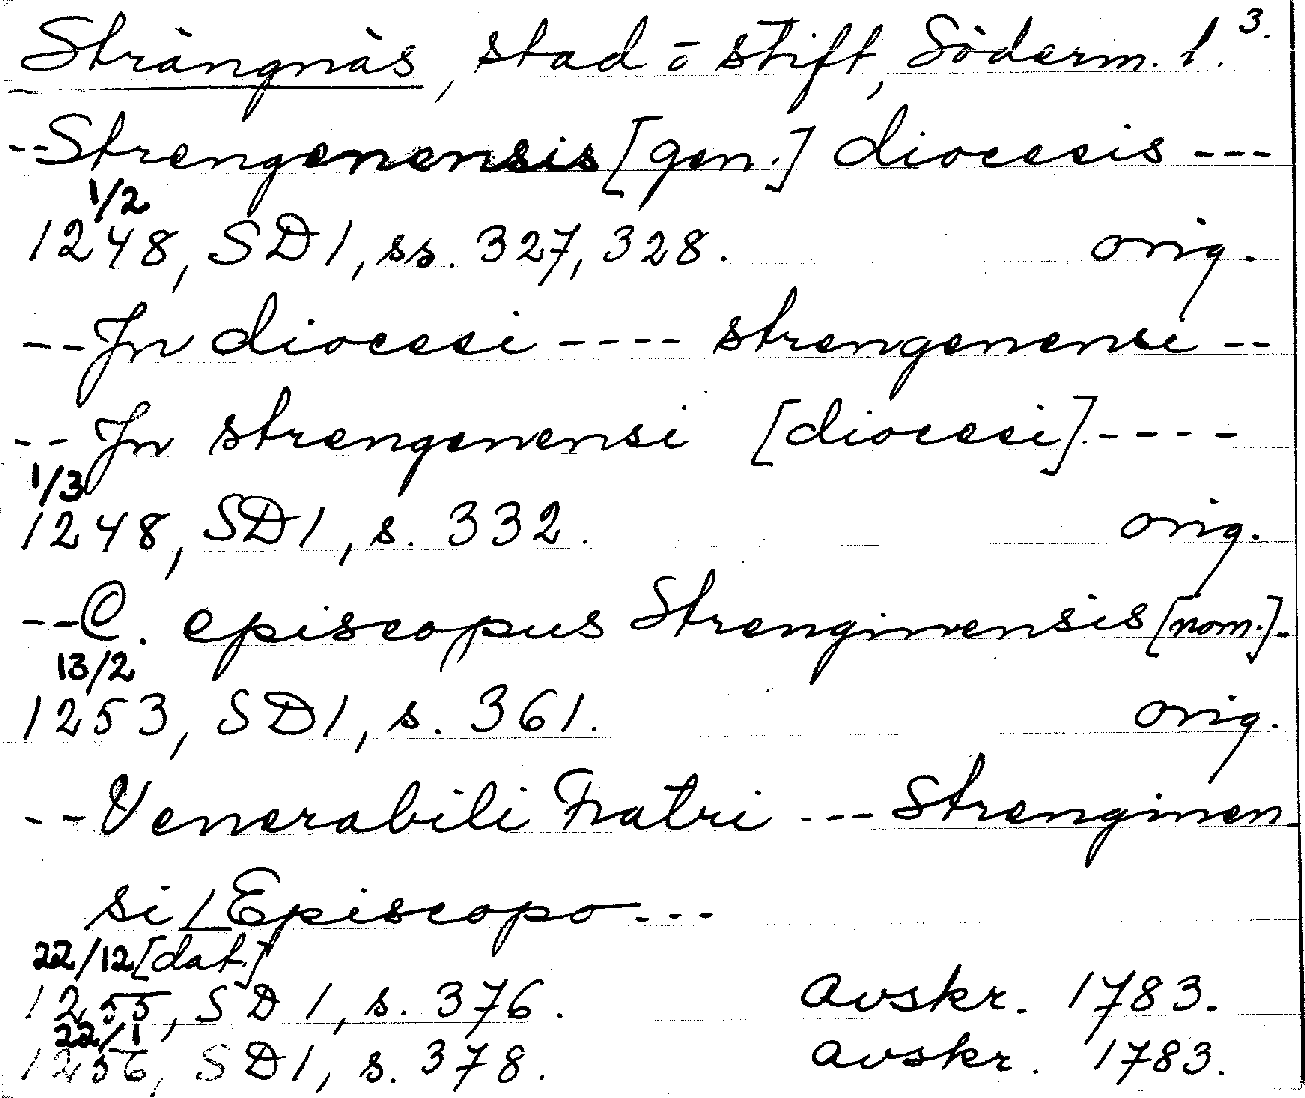 Strängnäs, stad o stift, Söderm. l. 3.
--Strengenensis [gen.] diocesis ---
1/2
1248, SD1, ss. 327, 328. orig.
--In diocesi ---- strengenensi --
--In strengenensi [diocesi] ----
1/3
1248, SD1, s. 332. orig.
--C. episcopus Strenginensis [nom.]-
13/2
1253, SD1, s. 361. orig.
--Venerabili Fratri --- Strenginen
si / Episcopo ---
22/12 [dat.]
1255, SD1, s. 376. avskr. 1783.
22/1
1256, SD1, s. 378. avskr. 1783.